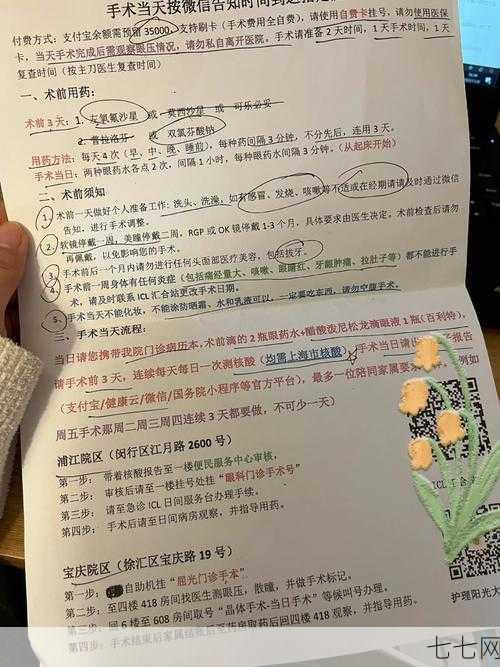 手术当天按微信告知时间到达指定
付费方式:支付宝余额需预留 35000,支持刷卡(手术费用全自费),请使用自费卡挂号,请勿使用医保
卡,当天手术完成后需观察眼压情况,请勿私自离开医院。手术请准备 2 天时间,1 天手术时间,1 天
复查时间(按主刀医生复查时间)
一、术前用药:
术前 3 天:1. 左氧氟沙星 或 莫西沙星 或 可乐必妥
2. 普拉洛芬 或 双氯芬酸钠
用药方法:每天 4 次(早、中、晚、睡前),每种药间隔 3 分钟,不分先后,连用 3 天。
手术当日:两种眼药水各点 2 次,间隔 1 小时,每种眼药水间隔 3 分钟。(从起床开始)
二、术前须知
1. 术前一天做好个人准备工作:洗头、洗澡,如有感冒、发烧、咳嗽等不适或在经期请及时通过微信
告知,进行手术调整。
2. 软镜停戴一周,美瞳停戴二周,RGP 或 OK 镜停戴 1-3 个月,具体要求由医生决定。术前检查后请勿
再佩戴,以免影响您的手术。
3. 手术前后一个月内请勿进行任何头面部医疗美容,包括拔牙。
4. 手术前一周身体有任何炎症(包括痛经量大、咳嗽、眼睛红、牙龈肿痛、拉肚子等)都不能进行手
术,请及时联系 ICL 汇合站更改手术日期。
5. 手术当天不能化妆,不能涂防晒霜、水和乳液可以,一定要吃东西,请勿空腹手术。
三、手术当天流程:
当日请您携带我院门诊病历本,术前滴的 2 瓶眼药水+醋酸泼尼松龙滴眼液 1 瓶(百利特),
请手术前 3 天,连续每天每日一次测核酸(均需上海市核酸),手术当日请出 报告
(支付宝/健康云/微信/国务院小程序等官方平台),最多一位陪同家属要 例如
周五手术那周二周三周四连续 3 天都要做,不可少一天)
浦江院区(闵行区江月路 2600 号)
第一步: 带着核酸报告至一楼便民服务中心审核,
第二步: 审核后请至一楼挂号处挂“眼科门诊手术号”
第三步: 请至急诊 ICL 日间服务台办理手续。
第四步: 手术后请至日间病房观察,并指导用药。
ICL
宝庆院区(徐汇区宝庆路 19 号)
第一步: 自助机挂“屈光门诊手术”
第二步: 至四楼 418 房间找医生测眼压,散瞳,并做手术标记。
第三步: 回 6 楼至 608 房间取号“晶体手术-当日手术”等候叫号办理。
第四步: 手术结束后家属结账后至药房取药后回四楼 418 观察,并指导用药。
护理阳光大
七七网